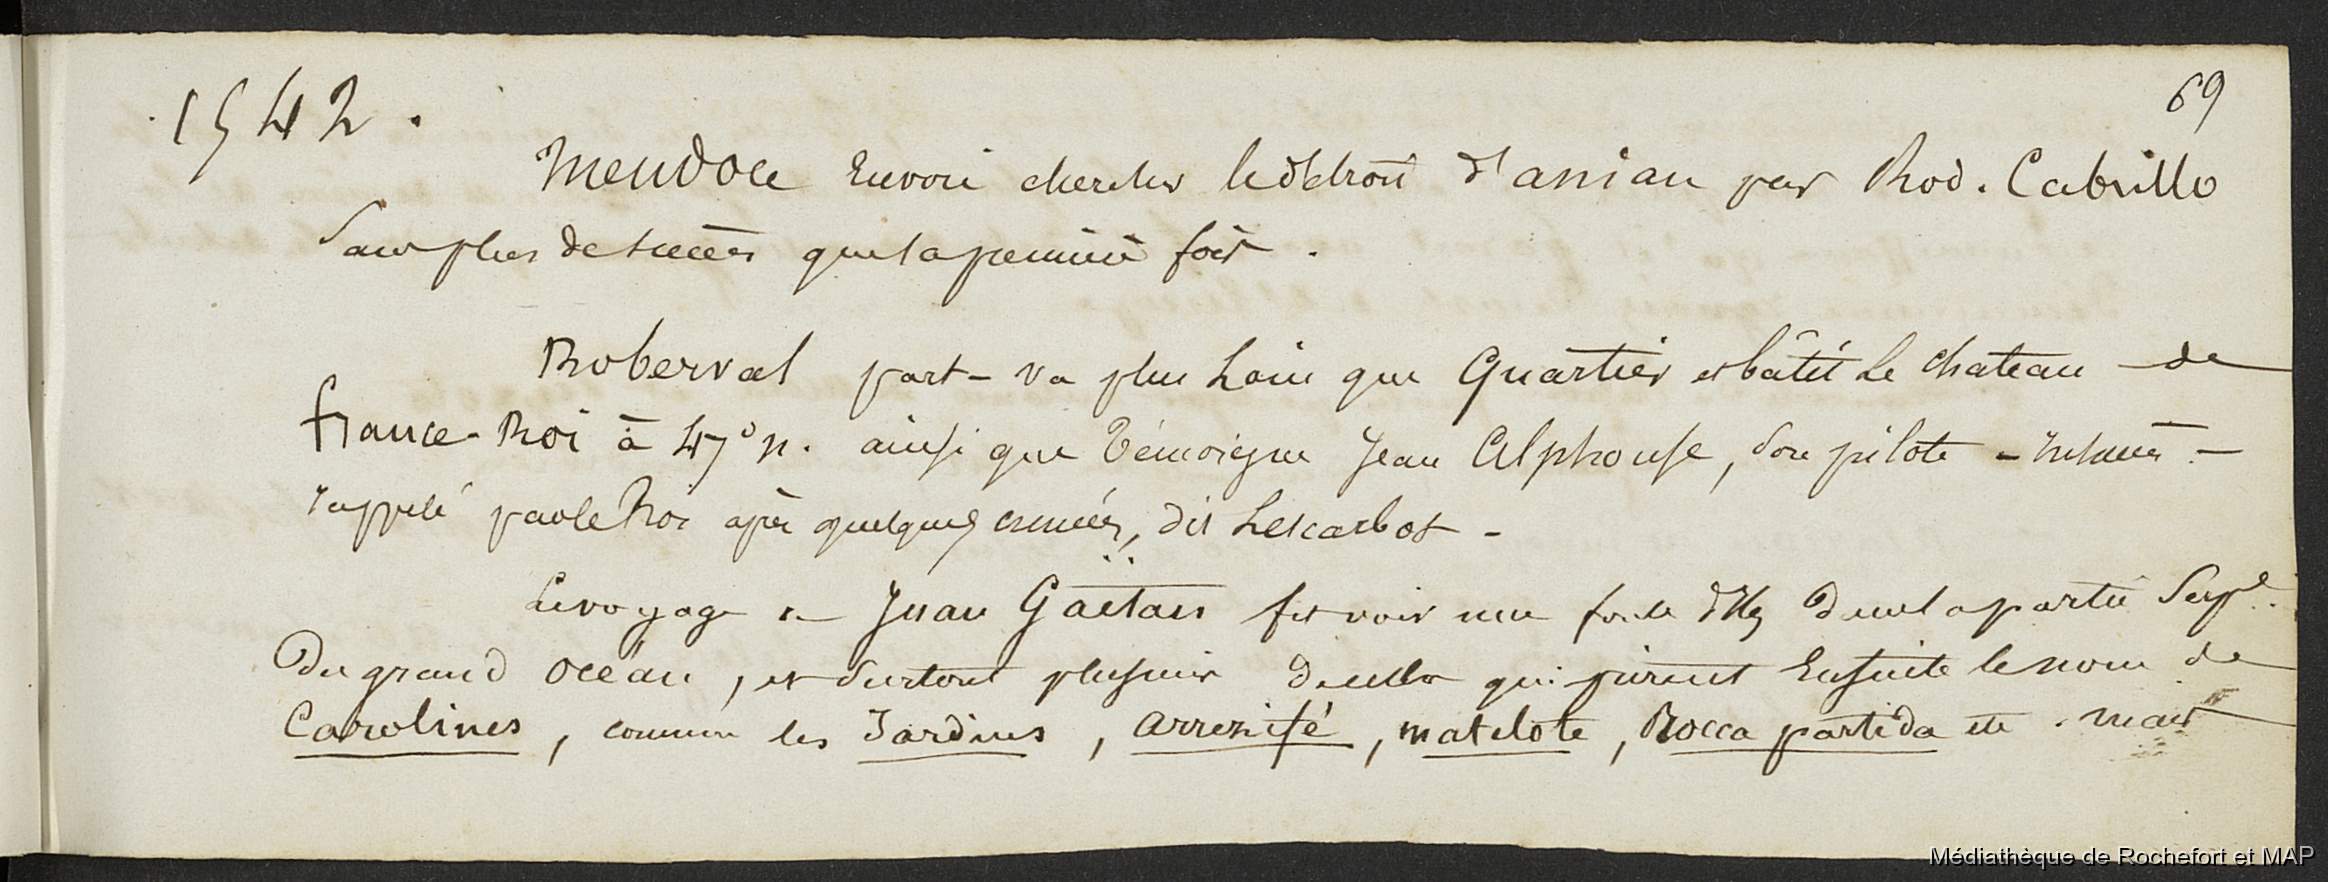 1542.
69
Mendoce Envoie chercher le détroit d'anian par Rod. Cabrillo
Sans plus de succès que la premiere fois.
Roberval part - va plus Loin que Quartier et bâtit Le chateau de
france-Roi à 47° n. ainsi que témoigne Jean Alphonse, son pilote -
rappelé par le Roi après quelques années, dit Lescarbot -
Le voyage de Juan Gaëtan fit voir une foule d'Iles dans la partie Sept.
Du grand océan, et surtout plusieurs de celles qui prirent Ensuite le nom de
Carolines, comme les Jardins, arrezifé, matelote, Rocca partida etc. mais
Médiathèque de Rochefort et MAP